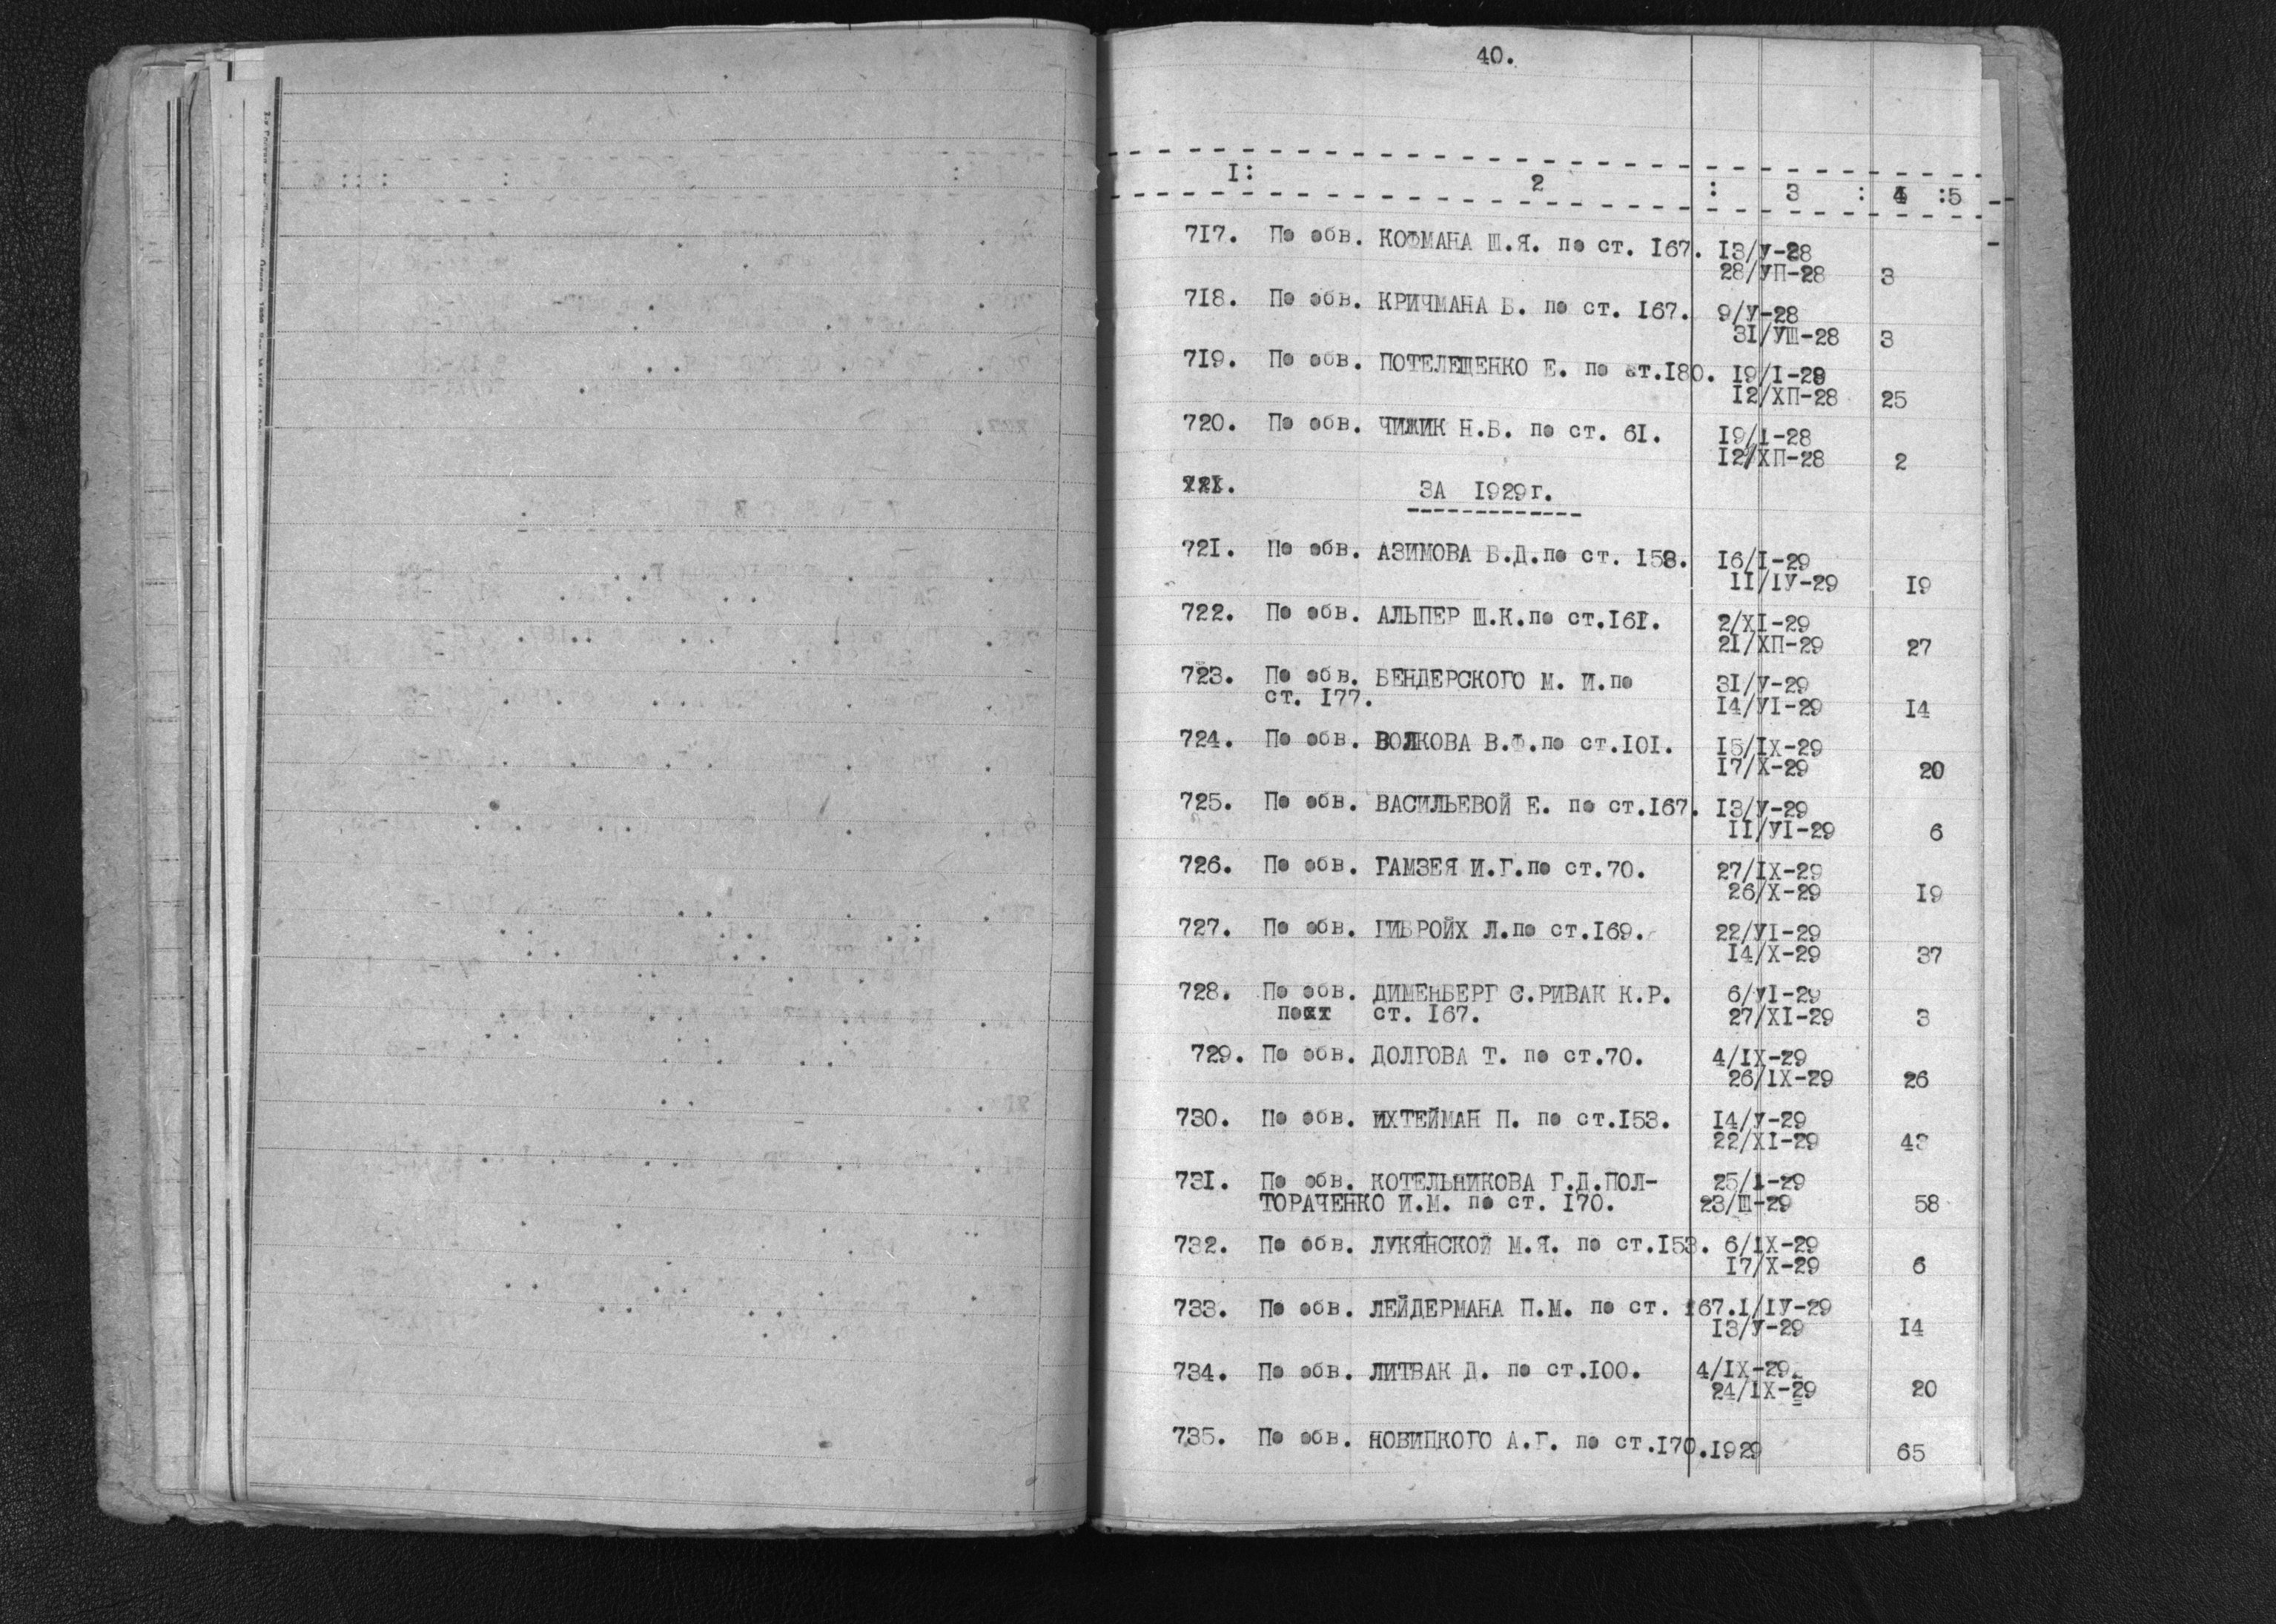 40.
I: 2 : 3 : 4 :5
717. По обв. КОФМАНА Ш.Я. по ст. 167. I3/У-28
28/УП-28 3
718. По обв. КРИЧМАНА Б. по ст. 167. 9/У-28
3I/УШ-28 3
719. По обв. ПОТЕЛЕЩЕНКО Е. по ст.180. I9/I-28
I2/ХП-28 25
720. По обв. ЧИЖИК Н.Б. по ст. 6I. I9/I-28
I2/ХП-28 2
ЗА 1929г.
72I. По обв. АЗИМОВА Б.Д.по ст. I58. I6/I-29
II/IУ-29 I9
722. По обв. АЛЬПЕР Ш.К.по ст.I6I. 2/XI-29
2I/ХП-29 27
723. По обв. БЕНДЕРСКОГО М. И.по 3I/У-29
ст. I77. I4/УI-29 I4
724. По обв. ВОЛКОВА В.Ф.по ст.IOI. I5/IX-29
I7/X-29 20
725. По обв. ВАСИЛЬЕВОЙ Е. по ст.I67. I3/У-29
II/УI-29 6
726. По обв. ГАМЗЕЯ И.Г.по ст.70. 27/IX-29
26/X-29 I9
727. По обв. ГИБРОЙХ Л.по ст.I69. 22/УI-29
I4/X-29 37
728. По обв. ДИМЕНБЕРГ С.РИВАК К.Р. 6/УI-29
по ст. I67. 27/XI-29 3
729. По обв. ДОЛГОВА Т. по ст.70. 4/IX-29
26/IX-29 26
730. По обв. ИХТЕЙМАН П. по ст.I53. I4/У-29
22/XI-29 43
73I. По обв. КОТЕЛЬНИКОВА Г.Д.ПОЛ- 25/I-29
ТОРАЧЕНКО И.М. по ст. I70. 23/Ш-29 58
732. По обв. ЛУКЯНСКОЙ М.Я. по ст.I53. 6/IX-29
I7/X-29 6
733. По обв. ЛЕЙДЕРМАНА П.М. по ст. I67.I/IУ-29
I3/У-29 I4
734. По обв. ЛИТВАК Д. по ст.I00. 4/IX-29
24/IX-29 20
735. По обв. НОВИЦКОГО А.Г. по ст.I70.I929 65